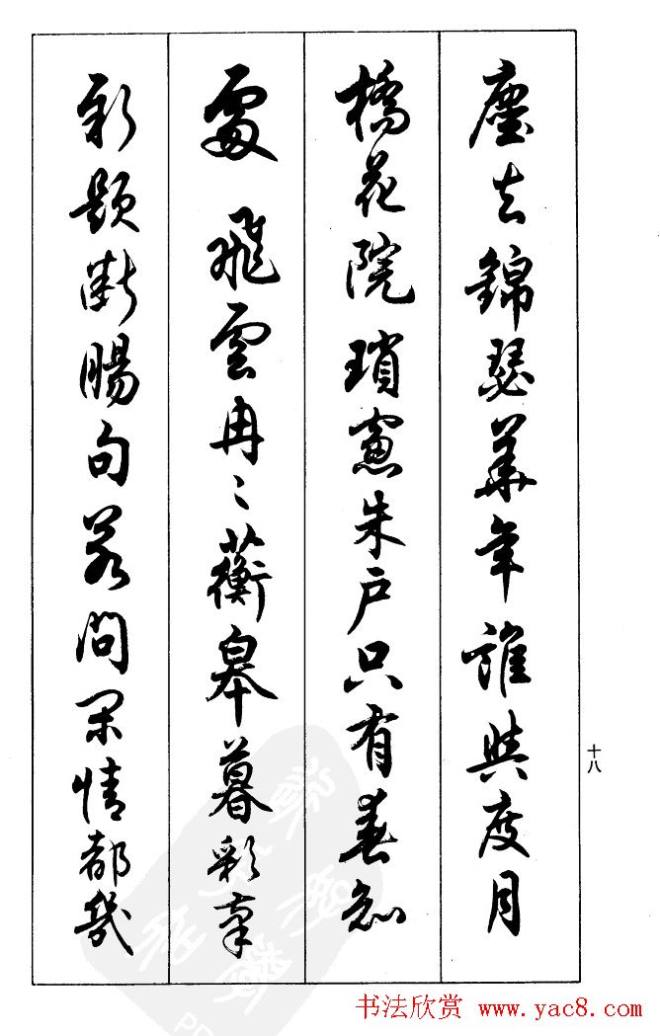 塵去錦瑟華年誰與度月
橋花院瑣窻朱戶只有春知
處飛雲冉〻蘅皋暮彩筆
新題斷腸句若問閑情都幾
十八
书法欣赏 www.yac8.com